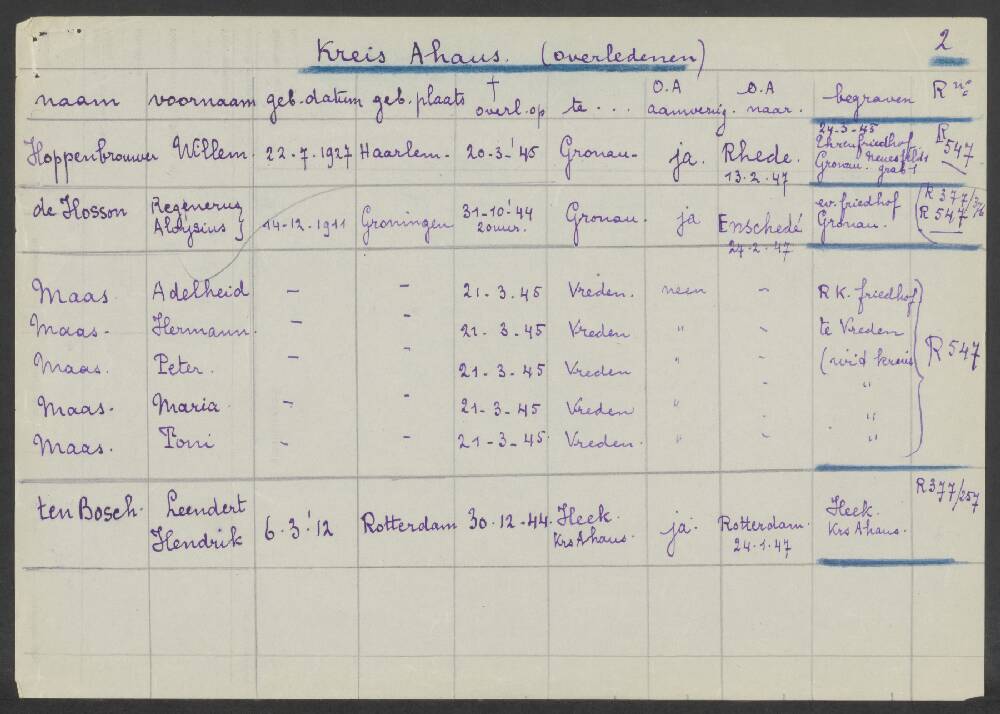 Kreis Ahaus. (overledenen) 2
naam voornaam geb. datum geb. plaats † overl. op te ... O.A aanwezig. O.A naar. begraven R no
Hoppenbrouwer Willem. 22.7.1927 Haarlem. 20-3-'45 Gronau. ja. Rhede. 13.2.47
27-3-45
Ehrenfriedhof
Gronau. neues feld 1
grab 1
R 547
de Hosson Regenerus Aloysius } 14-12.1911 Groningen 31-10'44 20 uur. Gronau. ja Enschedé 24-2.47
ev. friedhof
Gronau.
(R 377/376
R 547
Maas. Adelheid - - 21-3.45 Vreden. neen - R K. friedhof
Maas. Hermann. - - 21-3.45 Vreden " - te Vreden
Maas. Peter. - - 21-3.45 Vreden " - (wid kreis } R 547
Maas. Maria - - 21-3-45 Vreden " - "
Maas. Toni - - 21-3-45 Vreden. " - "
ten Bosch. Leendert Hendrik 6.3.'12 Rotterdam 30.12-44. Heek. Krs Ahaus. ja. Rotterdam. 24.1.47 Heek. Krs Ahaus. R 377/257